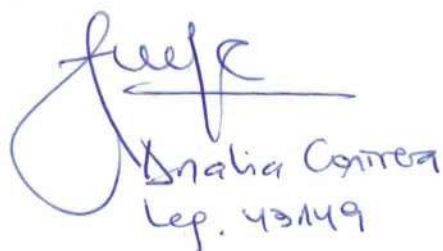 Analia Correa
Leg. 43149